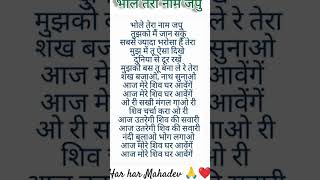 भोले तेरा नाम जपु
भोले तेरा नाम जपु
तुझको मैं जान सकू
सबसे ज्यादा भरोसा है तेरा
मुझ में तू ऐसा दिखे
दुनिया से दूर रखें
मुझको बस तू बना ले रे तेरा
शंख बजाओ, नाथ सुनाओ
आज मोरे शिव घर आवेंगें
आज मेरे शिव घर आवेंगें
ओ री सखी मंगल गाओ री
शिव चर्चा करा ओ री
आज उतरेगी शिव की सवारी
आज उतरेगी शिव की सवारी
नंदी बुलाओ भोग लगाओ
आज मोरे शिव घर आवेंगें
आज मोरे शिव घर आवेंगें
Har har Mahadev 🙏❤️